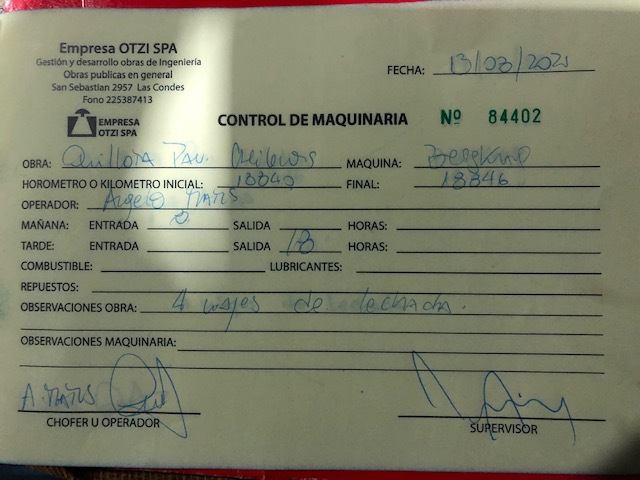 Empresa OTZI SPA
Gestión y desarrollo obras de Ingeniería
Obras publicas en general
San Sebastian 2957 Las Condes
Fono 225387413
EMPRESA
OTZI SPA
FECHA: 13/03/202
CONTROL DE MAQUINARIA Nº 84402
OBRA: Quillota MAQUINA:
HOROMETRO O KILOMETRO INICIAL: 18840 FINAL: 18846
OPERADOR: Angelo
MAÑANA: ENTRADA 8 SALIDA HORAS:
TARDE: ENTRADA SALIDA 18 HORAS:
COMBUSTIBLE: LUBRICANTES:
REPUESTOS:
OBSERVACIONES OBRA: 4 viajes de lechada.
OBSERVACIONES MAQUINARIA:
CHOFER U OPERADOR
SUPERVISOR